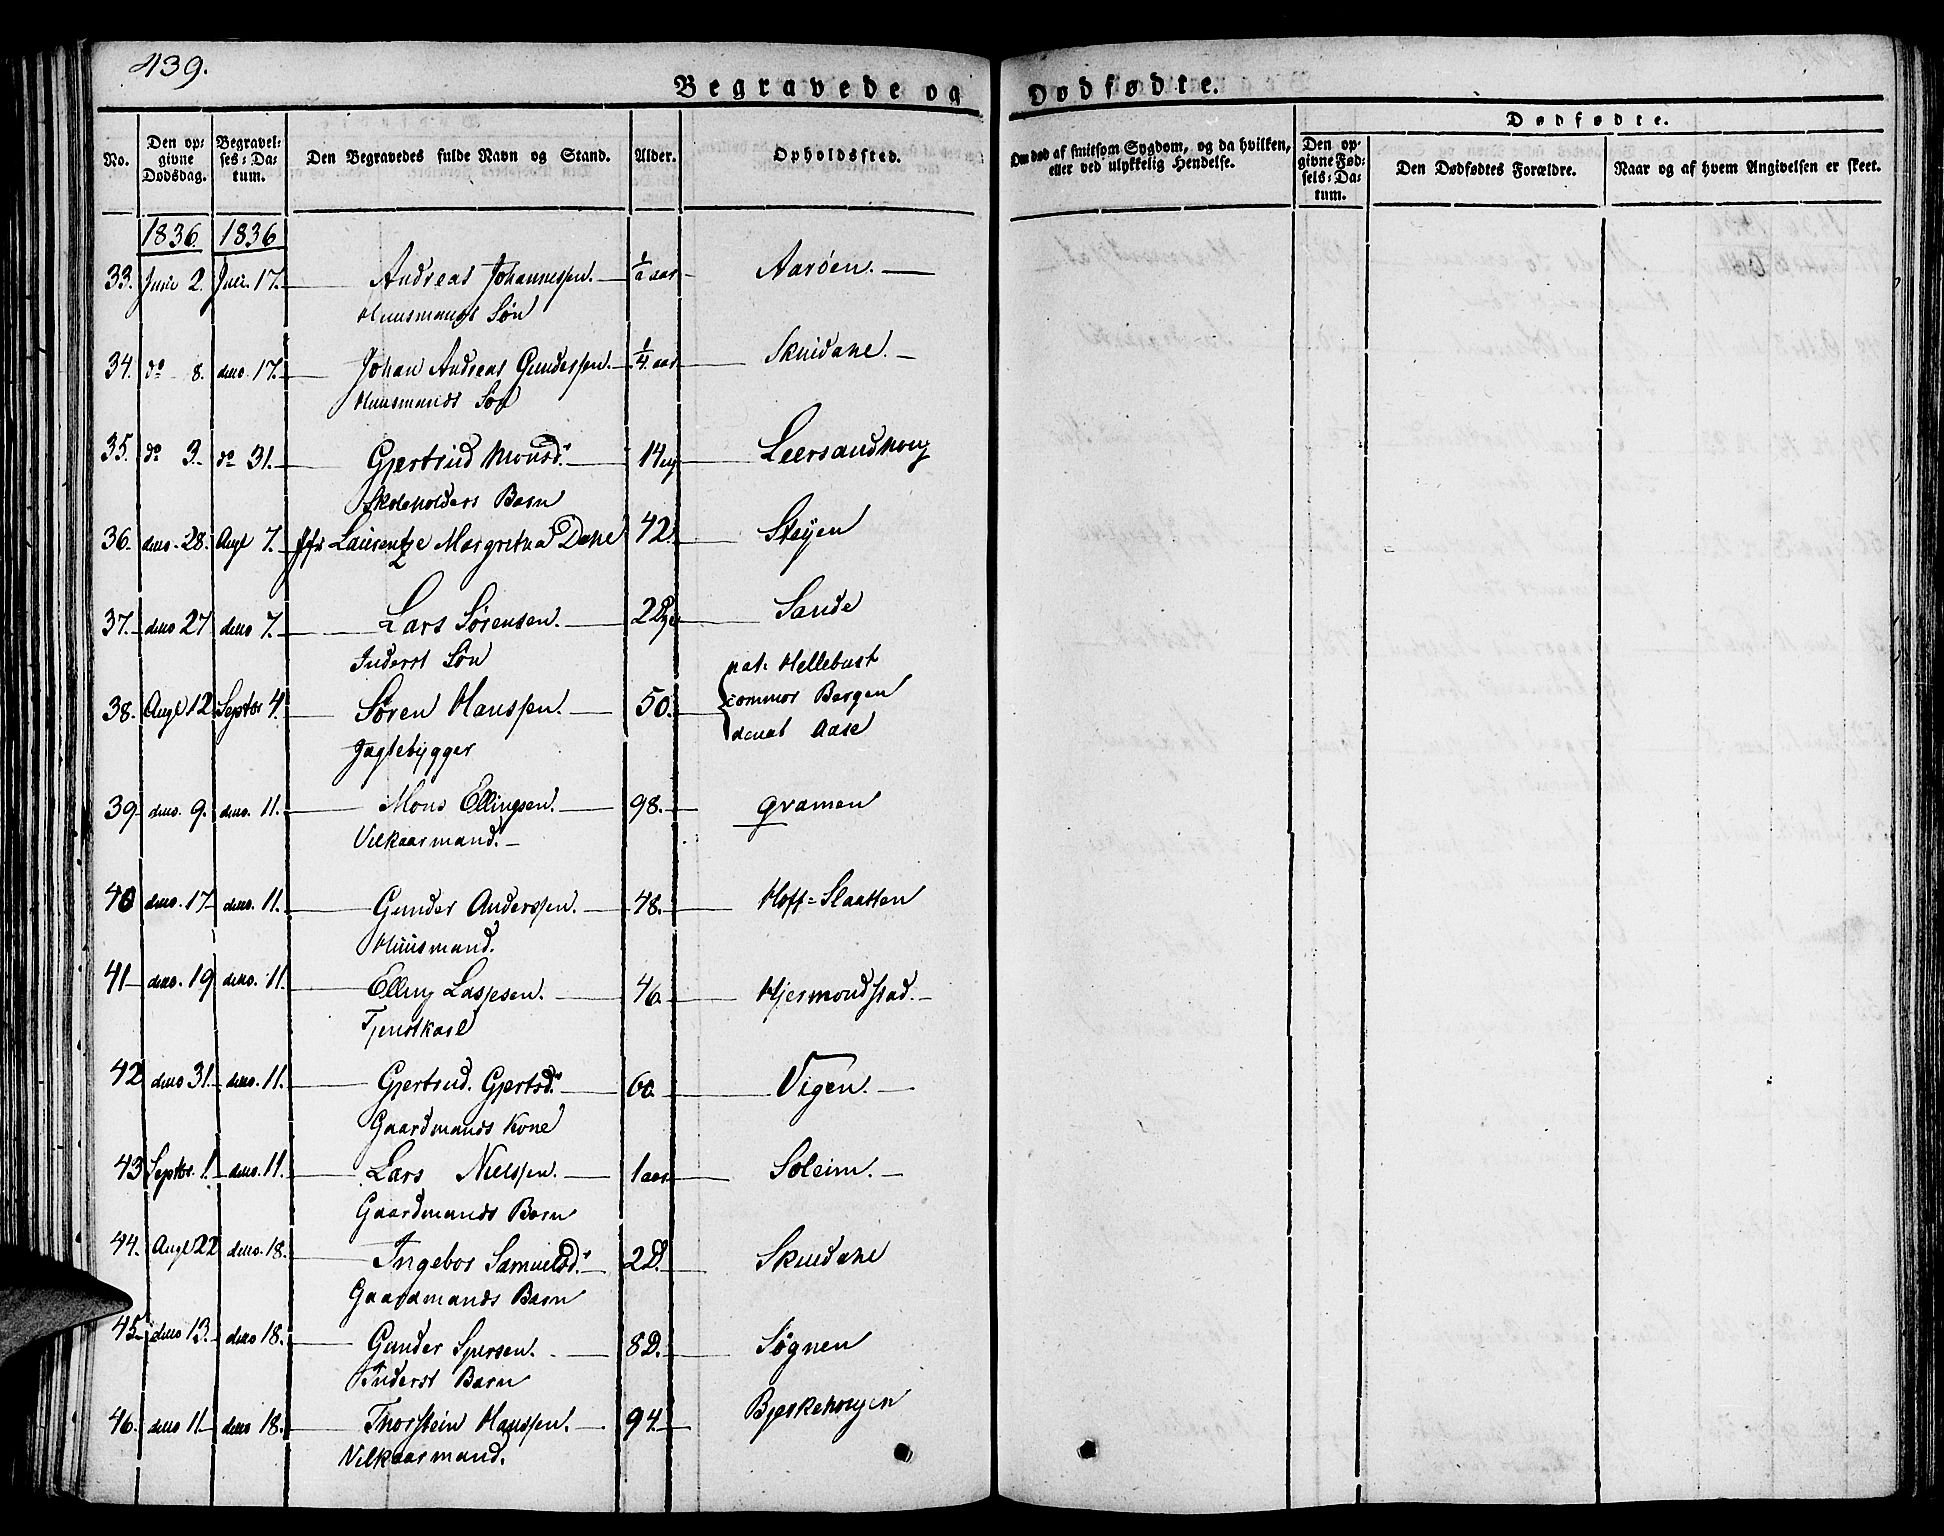 439.
Begravede og Dødfødte.
No.
Den opgivne Dødsdag.
Begravelses-Datum.
Den Begravedes fulde Navn og Stand.
Alder.
Opholdssted.
Om død af smitsom Sygdom, og da hvilken, eller ved ulykkelig Hendelse.
Dødfødte.
Den opgivne Fødsels-Datum.
Den Dødfødtes Forældre.
Naar og af hvem Angivelsen er skeet.
1836 1836
33. Juni 2. Juli. 17. Andreas Johannessen. 1/2 aar Aarøen.
Huusmands Søn
34. do 8. deno. 17. Johan Andreas Gundersen. 1/4 aar Skuidane.
Huusmands Søn
35. do 3. do 31. Gjertrud Monsd. 14 Leersandhoug
Skoleholders Barn
36. deno. 28. Augt 7. Jfr Laurentze Margretha Dahe 42. Støyen
37. deno 27 deno 7. Lars Sørensen. Sande
Inderst Søn
38. Augt 12 Septbr 4. Søren Hanssen. 50. nat: Hellebust
commor Bergen
denat Aase
Jagtebygger
39. deno. 9. deno. 11. Mons Ellingsen. 98. gramen
Vilkaarmand.
40 deno. 17 deno. 11. Gunder Anderssen. 48. Hoff=Slaatten
Huusmand.
41 deno. 19 deno. 11. Elling Lassesen. 46. Hjermondstad.
Tjenstkarl
42 deno 31. deno. 11. Gjertrud. Gjertsd. 60. Vigen.
Gaardmands Kone
43 Septbr. 1. deno. 11. Lars Nielssen. 1 aar Soleim.
Gaardmands Barn
44. Augt 22 deno. 18. Ingebor Samuelsd. 2 D. Skuidane
Gaardmands Barn
45. deno 13. deno 18. Gunder Sjursen. 8 D. Søgnen
Inderst Barn
46. deno 11. deno 18. Thorstein Hanssen. 94. Bjerkehougen
Vilkaarmand.